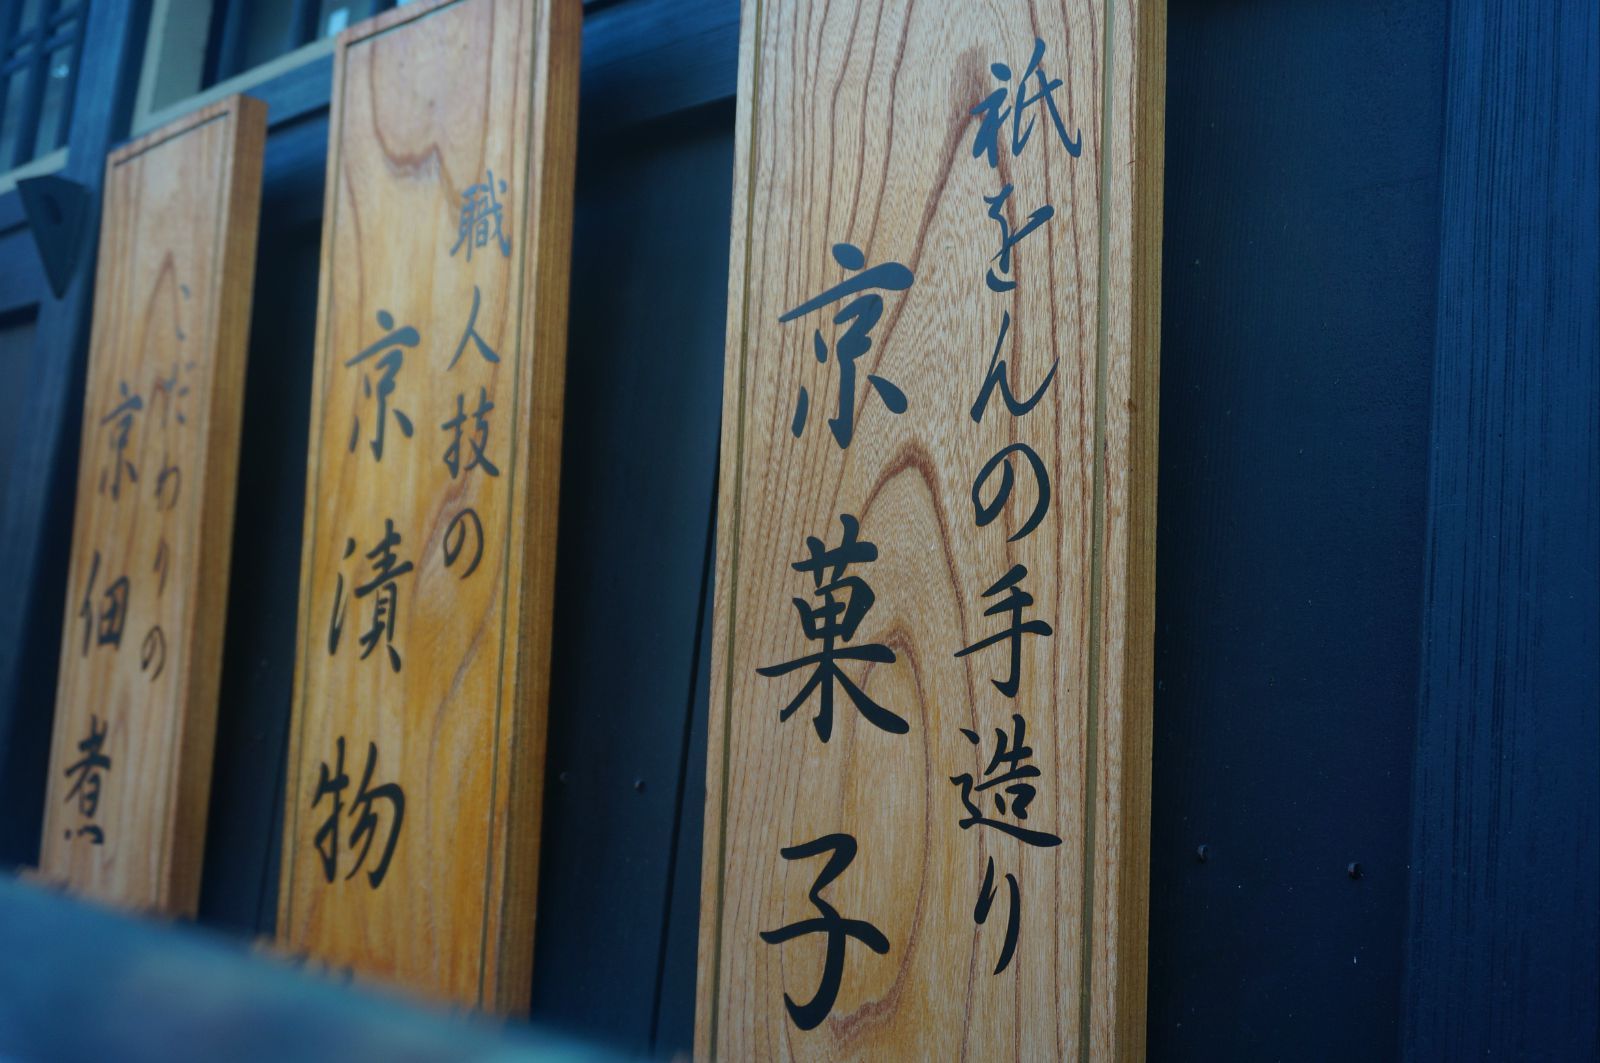 祇をんの手造り
京菓子
職人技の
京漬物
こだわりの
京佃煮